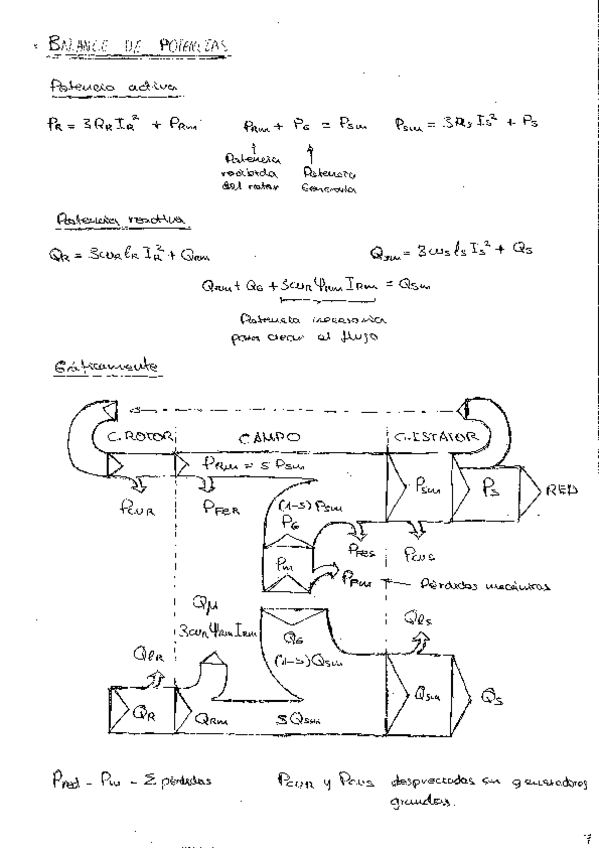 BALANCE DE POTENCIAS
Potencia activa
P_R = 3R_R I_R² + P_Rm    P_Rm + P_G = P_Sm    P_Sm = 3R_S I_S² + P_S
Potencia recibida del rotor
Potencia Generada
Potencia reactiva
Q_R = 3ω_R l_R I_R² + Q_Rm    Q_Sm = 3ω_S l_S I_S² + Q_S
Q_Rm + Q_G + 3ω_R Ψ_Rm I_Rm = Q_Sm
Potencia necesaria
para crear el flujo
Gráficamente
C.ROTOR    CAMPO    C.ESTATOR
P_Rm = S P_Sm
P_Sm    P_S    RED
P_CUR    P_FER
(1-S)P_Sm
P_G
P_FES    P_CUS
P_m
P_Fm    Pérdidas mecánicas
Q_μ
3ω_R Ψ_Rm I_Rm
Q_lR
Q_G
(1-S)Q_Sm
Q_lS
Q_R    Q_Rm    S Q_Sm    Q_Sm    Q_S
P_red - P_m - Σ pérdidas    P_CUR y P_CUS despreciadas en generadores
grandes.
7